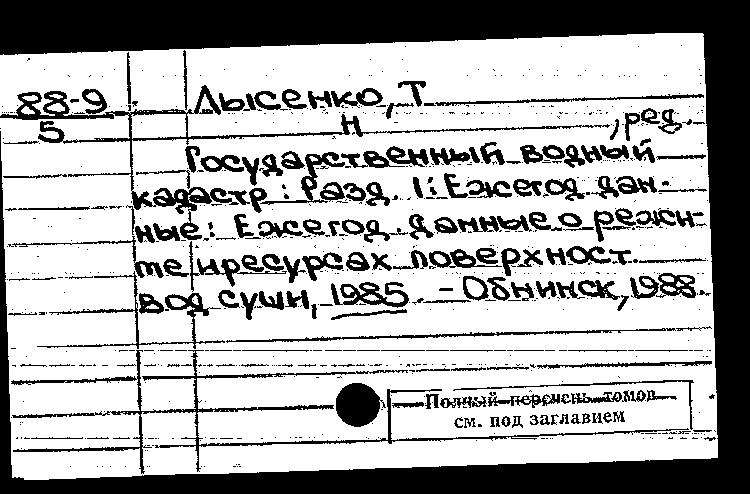 88-9 Лысенко, Т
5 Н , ред.
Государственный водный
кадастр : Разд. 1 : Ежегод. дан-
ные : Ежегод. данные о режи-
ме и ресурсах поверхност.
вод суши, 1985. - Обнинск, 1988.
Полный перечень томов
см. под заглавием